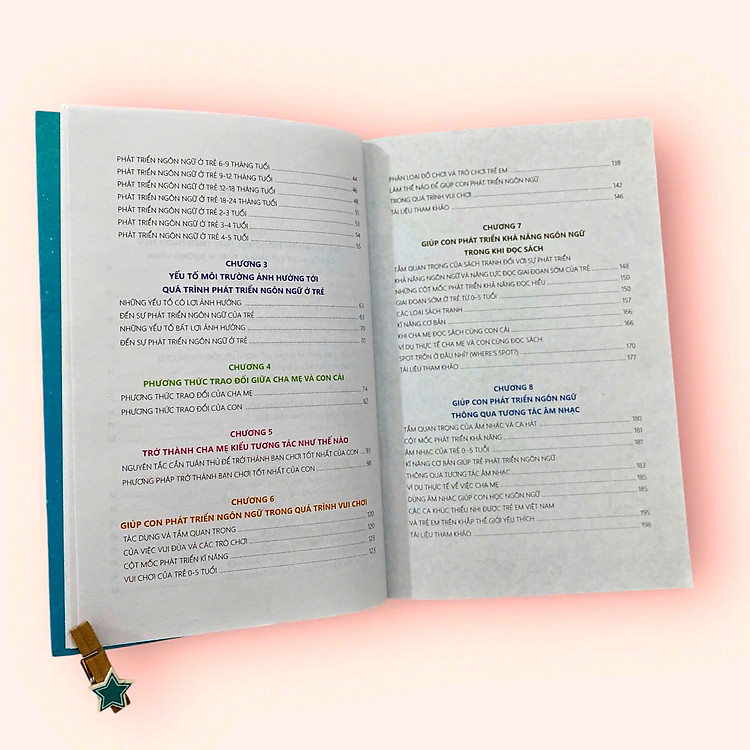 PHÁT TRIỂN NGÔN NGỮ Ở TRẺ 6-9 THÁNG TUỔI 44
PHÁT TRIỂN NGÔN NGỮ Ở TRẺ 9-12 THÁNG TUỔI 46
PHÁT TRIỂN NGÔN NGỮ Ở TRẺ 12-18 THÁNG TUỔI 48
PHÁT TRIỂN NGÔN NGỮ Ở TRẺ 18-24 THÁNG TUỔI 51
PHÁT TRIỂN NGÔN NGỮ Ở TRẺ 2-3 TUỔI 53
PHÁT TRIỂN NGÔN NGỮ Ở TRẺ 3-4 TUỔI 54
PHÁT TRIỂN NGÔN NGỮ Ở TRẺ 4-5 TUỔI 55
CHƯƠNG 3
YẾU TỐ MÔI TRƯỜNG ẢNH HƯỞNG TỚI
QUÁ TRÌNH PHÁT TRIỂN NGÔN NGỮ Ở TRẺ
NHỮNG YẾU TỐ CÓ LỢI ẢNH HƯỞNG 63
ĐẾN SỰ PHÁT TRIỂN NGÔN NGỮ CỦA TRẺ 63
NHỮNG YẾU TỐ BẤT LỢI ẢNH HƯỞNG 70
ĐẾN SỰ PHÁT TRIỂN NGÔN NGỮ Ở TRẺ 70
CHƯƠNG 4
PHƯƠNG THỨC TRAO ĐỔI GIỮA CHA MẸ VÀ CON CÁI
PHƯƠNG THỨC TRAO ĐỔI CỦA CHA MẸ 74
PHƯƠNG THỨC TRAO ĐỔI CỦA CON 82
CHƯƠNG 5
TRỞ THÀNH CHA MẸ KIỂU TƯƠNG TÁC NHƯ THẾ NÀO
NGUYÊN TẮC CẦN TUÂN THỦ ĐỂ TRỞ THÀNH BẠN CHƠI TỐT NHẤT CỦA CON 93
PHƯƠNG PHÁP TRỞ THÀNH BẠN CHƠI TỐT NHẤT CỦA CON 98
CHƯƠNG 6
GIÚP CON PHÁT TRIỂN NGÔN NGỮ TRONG QUÁ TRÌNH VUI CHƠI
TÁC DỤNG VÀ TẦM QUAN TRỌNG 120
CỦA VIỆC VUI ĐÙA VÀ CÁC TRÒ CHƠI 120
CỘT MỐC PHÁT TRIỂN KĨ NĂNG 123
VUI CHƠI CỦA TRẺ 0-5 TUỔI 123
PHÂN LOẠI ĐỒ CHƠI VÀ TRÒ CHƠI TRẺ EM 138
LÀM THẾ NÀO ĐỂ GIÚP CON PHÁT TRIỂN NGÔN NGỮ
TRONG QUÁ TRÌNH VUI CHƠI 142
TÀI LIỆU THAM KHẢO 146
CHƯƠNG 7
GIÚP CON PHÁT TRIỂN KHẢ NĂNG NGÔN NGỮ
TRONG KHI ĐỌC SÁCH
TẦM QUAN TRỌNG CỦA SÁCH TRANH ĐỐI VỚI SỰ PHÁT TRIỂN
KHẢ NĂNG NGÔN NGỮ VÀ NĂNG LỰC ĐỌC GIAI ĐOẠN SỚM CỦA TRẺ 148
NHỮNG CỘT MỐC PHÁT TRIỂN KHẢ NĂNG ĐỌC HIỂU 150
GIAI ĐOẠN SỚM Ở TRẺ TỪ 0-5 TUỔI 150
CÁC LOẠI SÁCH TRANH 157
KĨ NĂNG CƠ BẢN 166
KHI CHA MẸ ĐỌC SÁCH CÙNG CON CÁI 166
VÍ DỤ THỰC TẾ CHA MẸ VÀ CON CÙNG ĐỌC SÁCH:
SPOT TRỐN Ở ĐÂU NHỈ? (WHERE'S SPOT?) 170
TÀI LIỆU THAM KHẢO 177
CHƯƠNG 8
GIÚP CON PHÁT TRIỂN NGÔN NGỮ
THÔNG QUA TƯƠNG TÁC ÂM NHẠC
TẦM QUAN TRỌNG CỦA ÂM NHẠC VÀ CA HÁT 180
CỘT MỐC PHÁT TRIỂN KHẢ NĂNG 181
ÂM NHẠC CỦA TRẺ 0-5 TUỔI 181
KĨ NĂNG CƠ BẢN GIÚP TRẺ PHÁT TRIỂN NGÔN NGỮ
THÔNG QUA TƯƠNG TÁC ÂM NHẠC 183
VÍ DỤ THỰC TẾ VỀ VIỆC CHA MẸ 185
DÙNG ÂM NHẠC GIÚP CON HỌC NGÔN NGỮ 185
CÁC CA KHÚC THIẾU NHI ĐƯỢC TRẺ EM VIỆT NAM
VÀ TRẺ EM TRÊN KHẮP THẾ GIỚI YÊU THÍCH 195
TÀI LIỆU THAM KHẢO 198